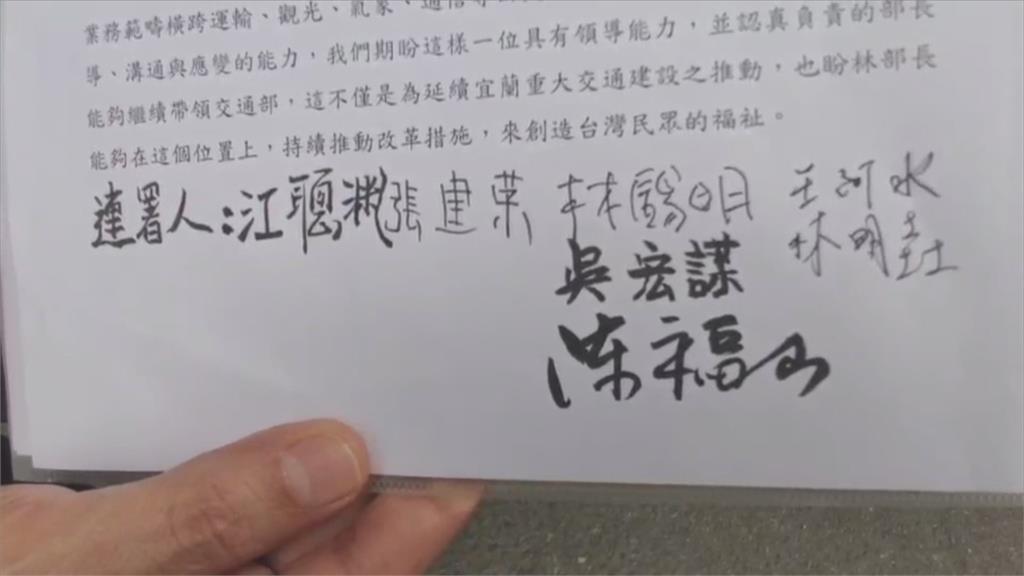 業務範疇橫跨運輸、觀光、氣象、通信
導、溝通與應變的能力，我們期盼這樣一位具有領導能力，並認真負責的部長
能夠繼續帶領交通部，這不僅是為延續宜蘭重大交通建設之推動，也盼林部長
能夠在這個位置上，持續推動改革措施，來創造台灣民眾的福祉。
連署人：江聰淵 張建榮 林錫明 王河水
吳宏謀 林明
陳福山